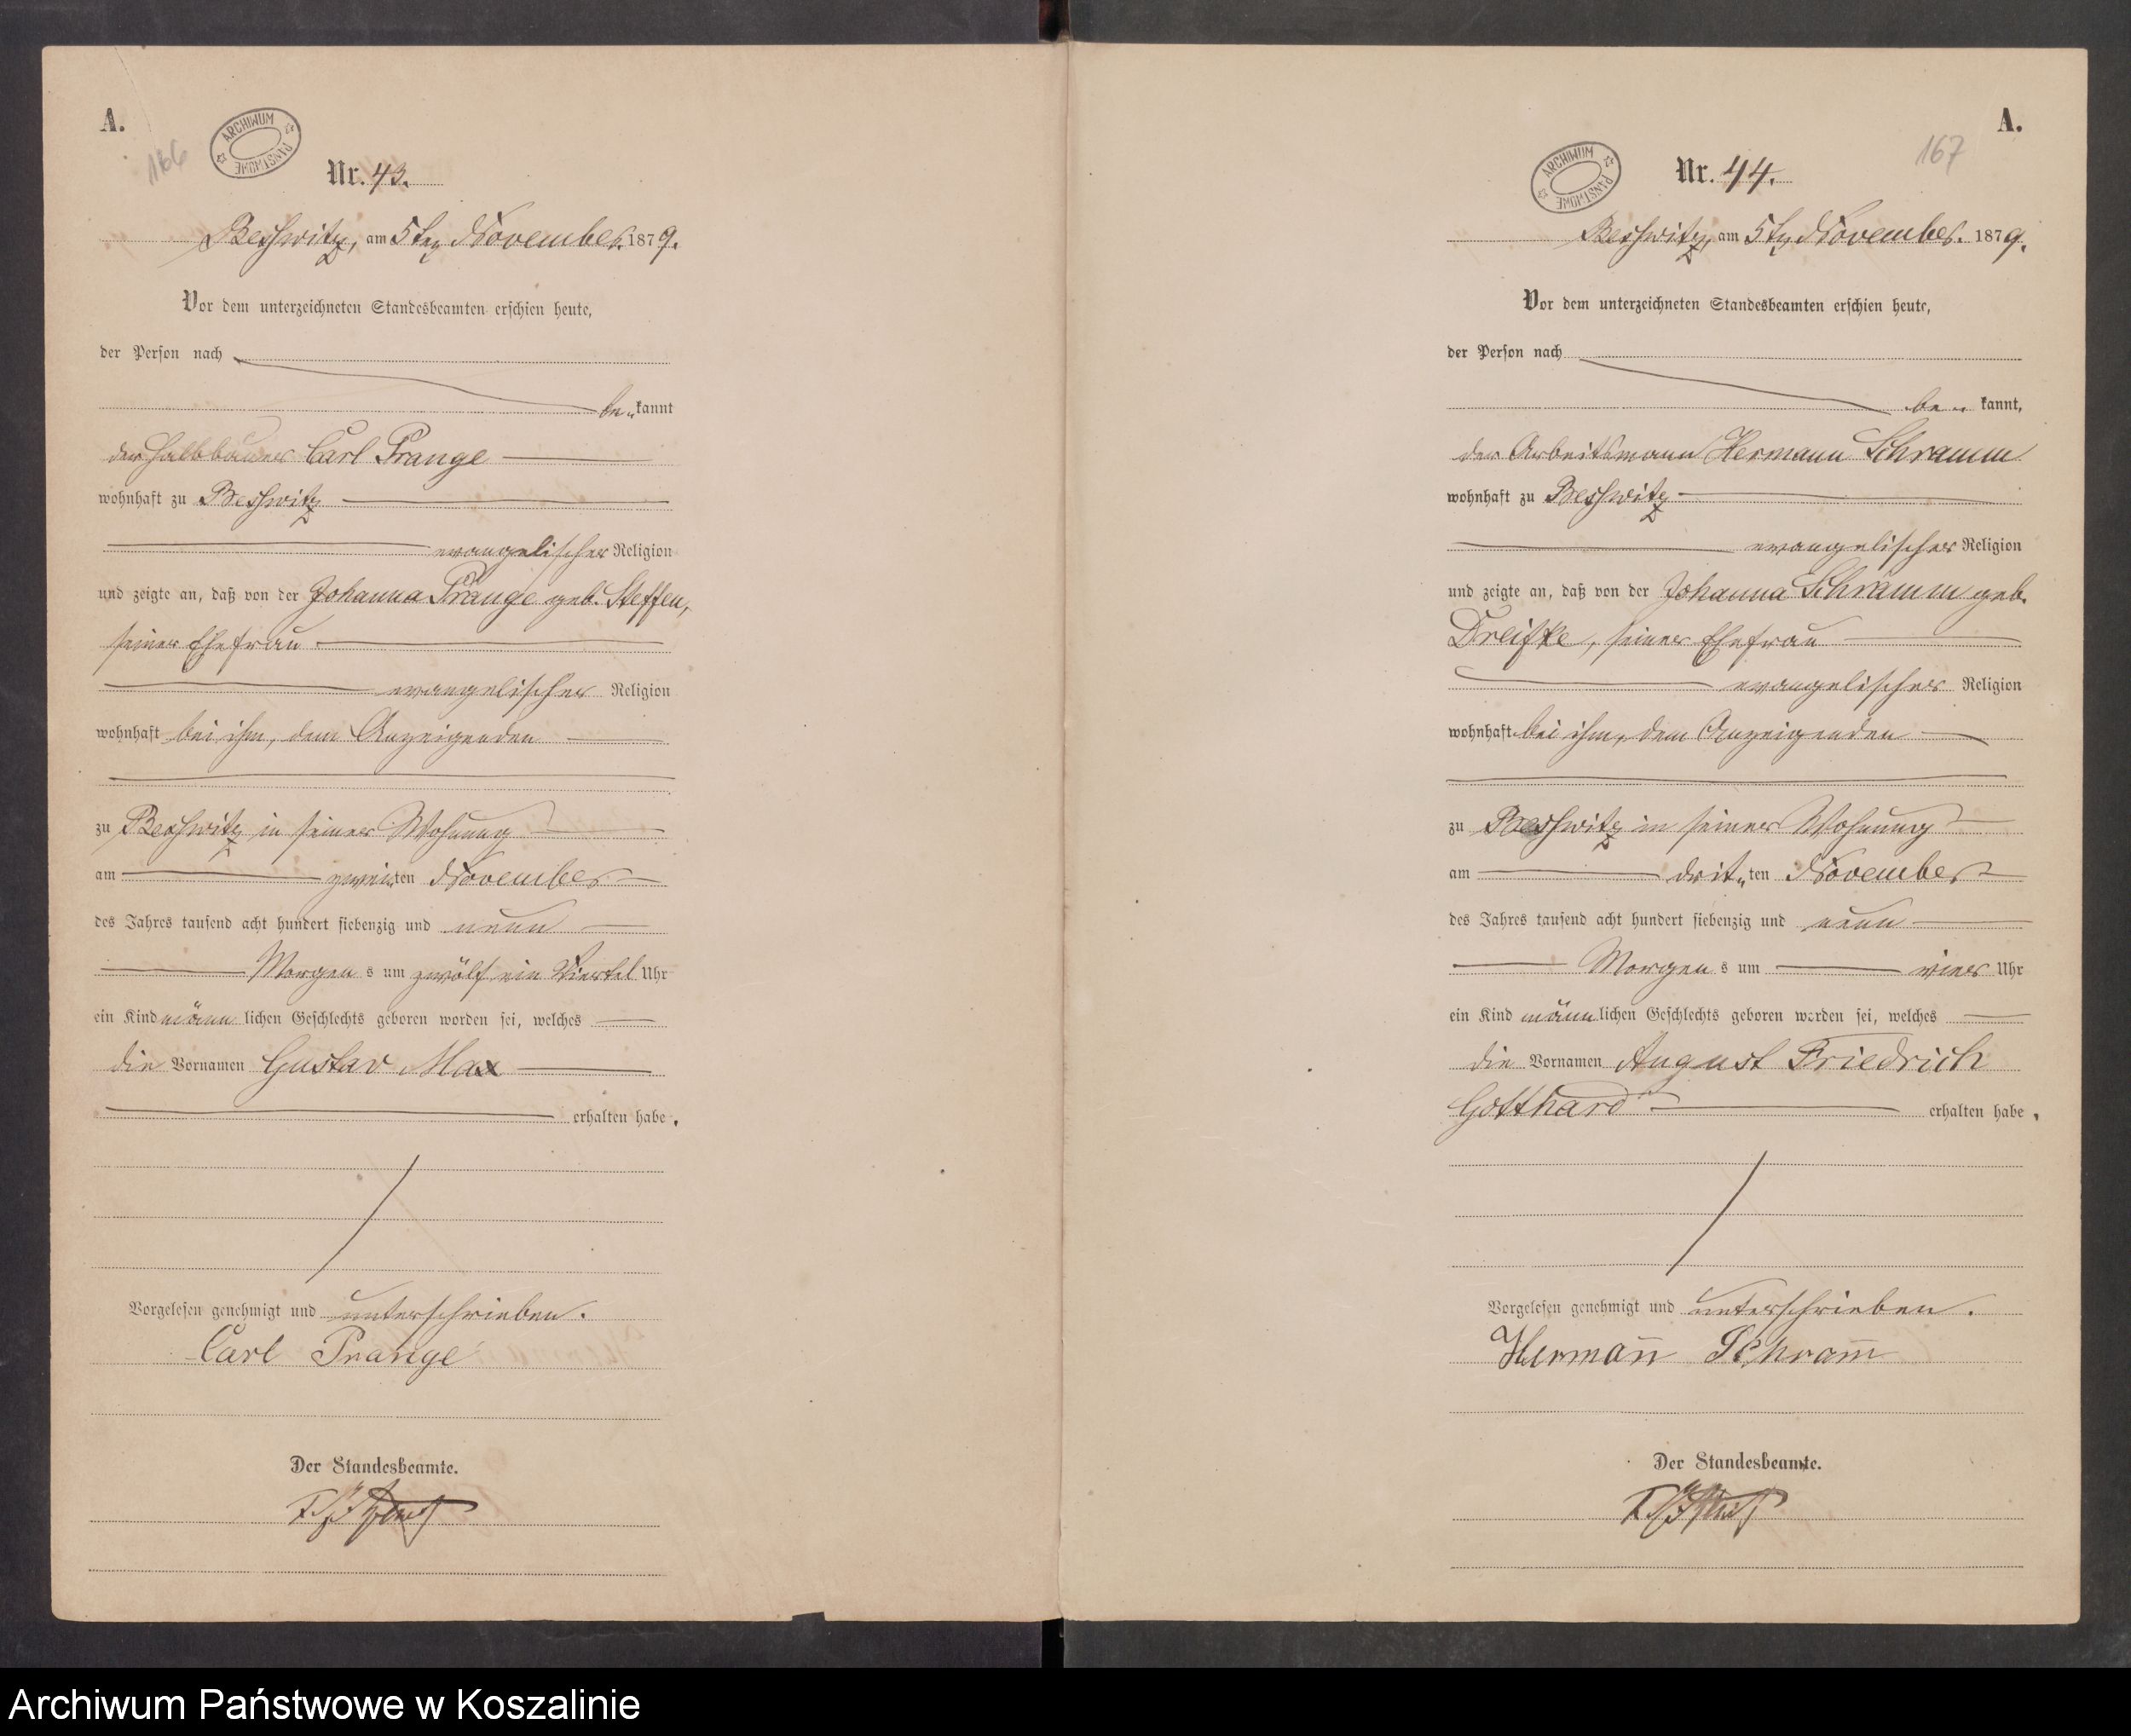 A.
166
ARCHIWUM PAŃSTWOWE
Nr. 43.
Beßwitz, am 5ten November 1879.
Vor dem unterzeichneten Standesbeamten erschien heute,
der Person nach
be„kannt
der Halbbauer Carl Prange
wohnhaft zu Beßwitz
evangelischer Religion
und zeigte an, daß von der Johanna Prange geb. Steffen,
seiner Ehefrau
evangelischer Religion
wohnhaft bei ihm, dem Anzeigenden
zu Beßwitz in seiner Wohnung
am zwei„ten November
des Jahres tausend acht hundert siebenzig und neun
Morgen s um zwölf ein Viertel Uhr
ein Kind männ lichen Geschlechts geboren worden sei, welches
die Vornamen Gustav Max
erhalten habe.
Vorgelesen genehmigt und unterschrieben.
Carl Prange
Der Standesbeamte.
A.
167
ARCHIWUM PAŃSTWOWE
Nr. 44.
Beßwitz, am 5ten November. 1879.
Vor dem unterzeichneten Standesbeamten erschien heute,
der Person nach
be„ kannt,
der Arbeitsmann Hermann Schramm
wohnhaft zu Beßwitz
evangelischer Religion
und zeigte an, daß von der Johanna Schramm geb.
Dreifke, seiner Ehefrau
evangelischer Religion
wohnhaft bei ihm, dem Anzeigenden
zu Beßwitz in seiner Wohnung
am drit„ten November
des Jahres tausend acht hundert siebenzig und neun
Morgen s um vier Uhr
ein Kind männlichen Geschlechts geboren worden sei, welches
die Vornamen August Friedrich
Gotthard erhalten habe.
Vorgelesen genehmigt und unterschrieben.
Herman̄ Schram̄
Der Standesbeamte.
Archiwum Państwowe w Koszalinie